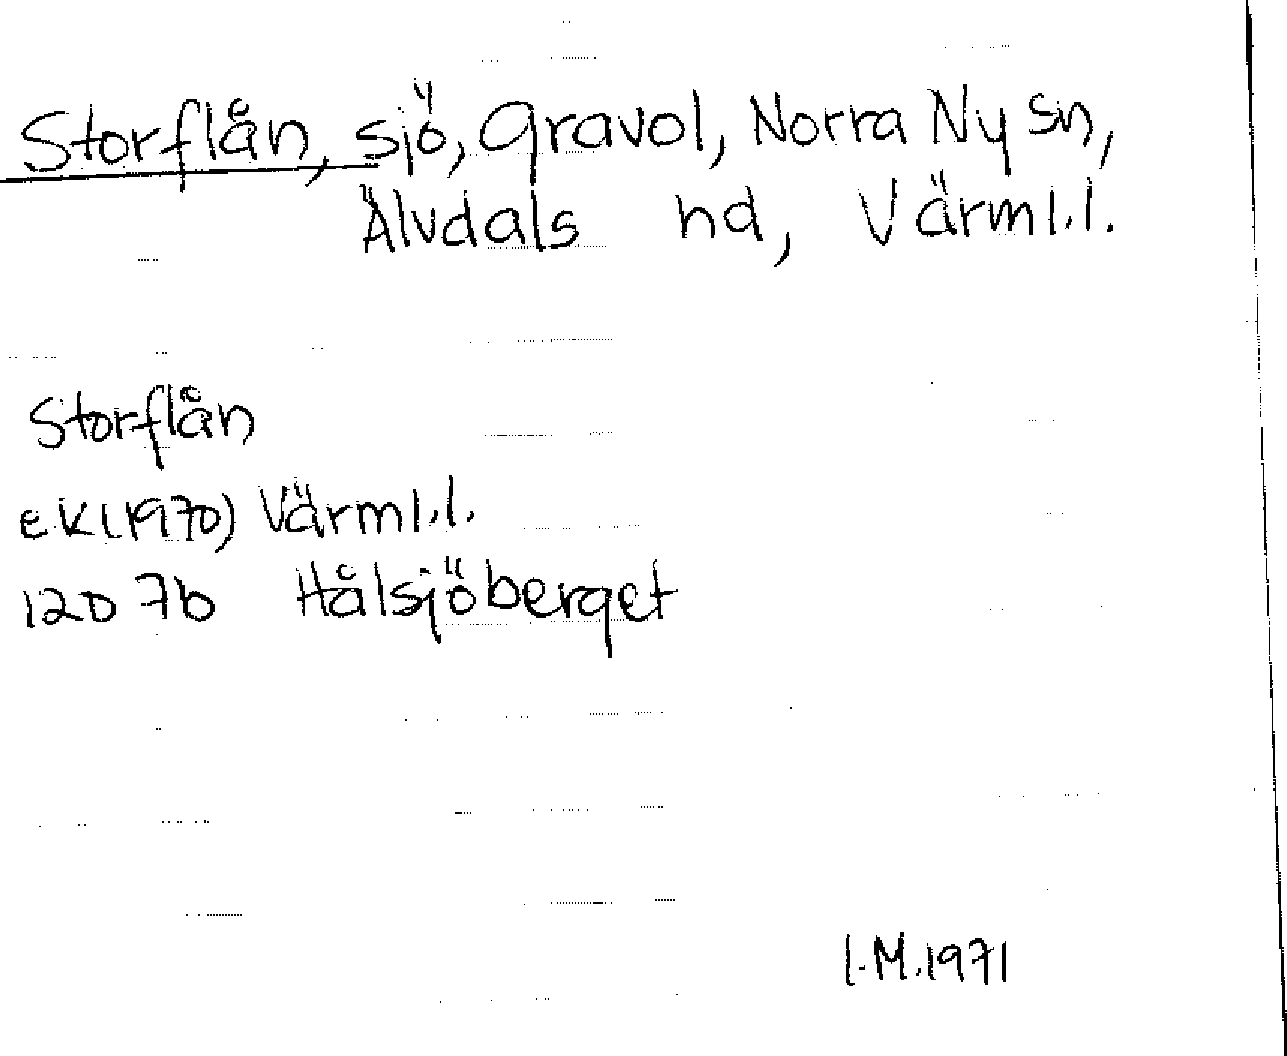 Storflån, sjö, Gravol, Norra Ny sn,
Älvdals hd, Värml.l.
Storflån
e.K(1970) Värml.l.
12D 7b Hålsjöberget
I.M.1971